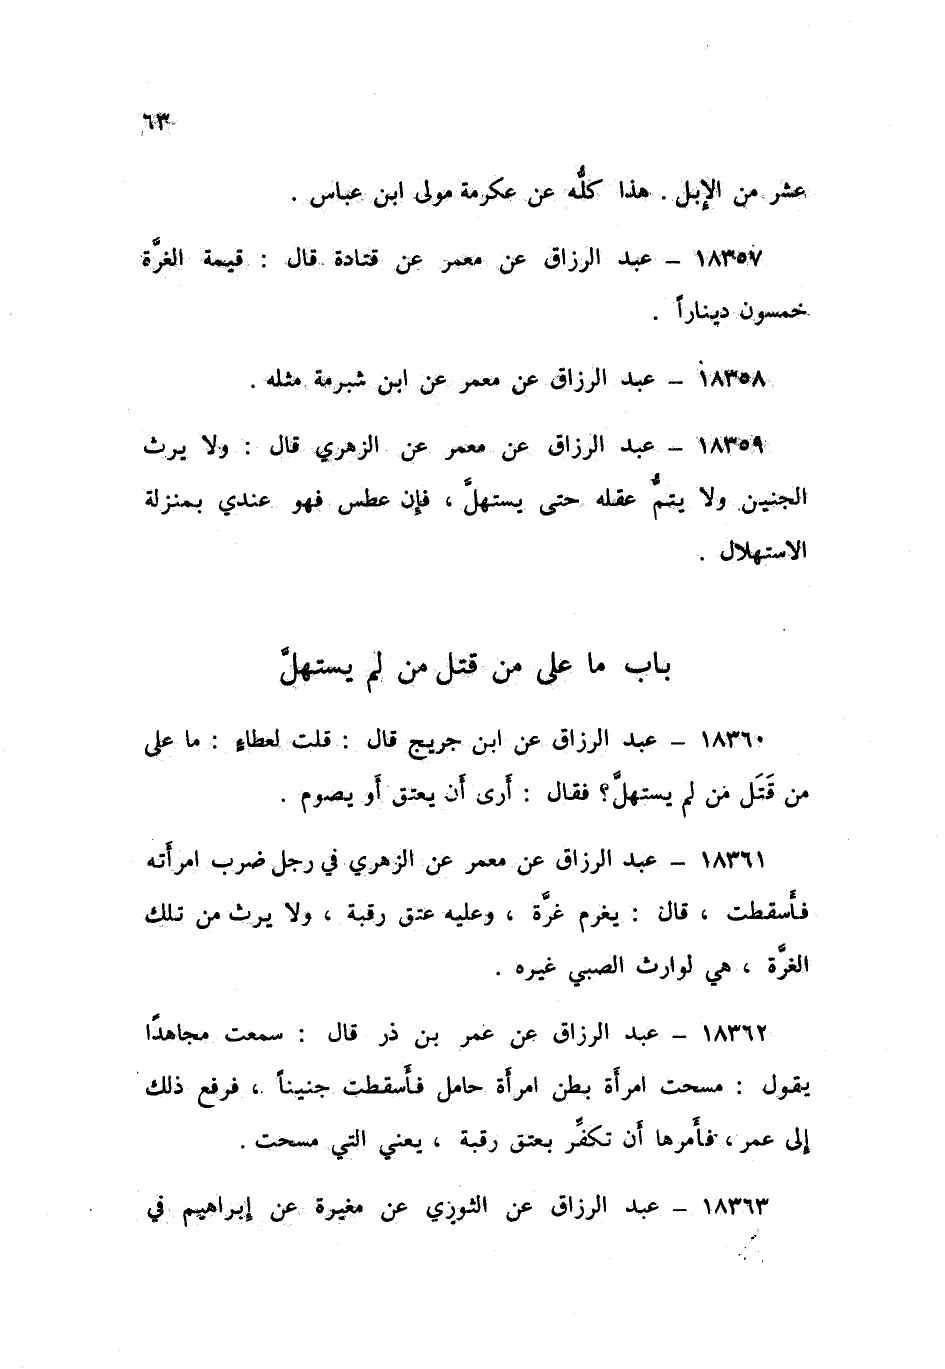 ٦٣
عشر من الإبل . هذا كلُّه عن عكرمة مولى ابن عباس .
١٨٣٥٧ – عبد الرزاق عن معمر عن قتادة قال : قيمة الغرَّة
خمسون ديناراً .
١٨٣٥٨ – عبد الرزاق عن معمر عن ابن شبرمة مثله .
١٨٣٥٩ – عبد الرزاق عن معمر عن الزهري قال : ولا يرث
الجنين ولا يتمُّ عقله حتى يستهلَّ ، فإن عطس فهو عندي بمنزلة
الاستهلال .
باب ما على من قتل من لم يستهلَّ
١٨٣٦٠ – عبد الرزاق عن ابن جريج قال : قلت لعطاءٍ : ما على
من قَتَل مَن لم يستهلَّ؟ فقال : أَرى أَن يعتق أَو يصوم .
١٨٣٦١ – عبد الرزاق عن معمر عن الزهري في رجل ضرب امرأَته
فأَسقطت ، قال : يغرم غرَّة ، وعليه عتق رقبة ، ولا يرث من تلك
الغرَّة ، هي لوارث الصبي غيره .
١٨٣٦٢ – عبد الرزاق عن عمر بن ذر قال : سمعت مجاهدًا
يقول : مسحت امرأَة بطن امرأَة حامل فأَسقطت جنيناً ، فرفع ذلك
إلى عمر ، فأَمرها أَن تكفِّر بعتق رقبة ، يعني التي مسحت .
١٨٣٦٣ – عبد الرزاق عن الثوري عن مغيرة عن إبراهيم في